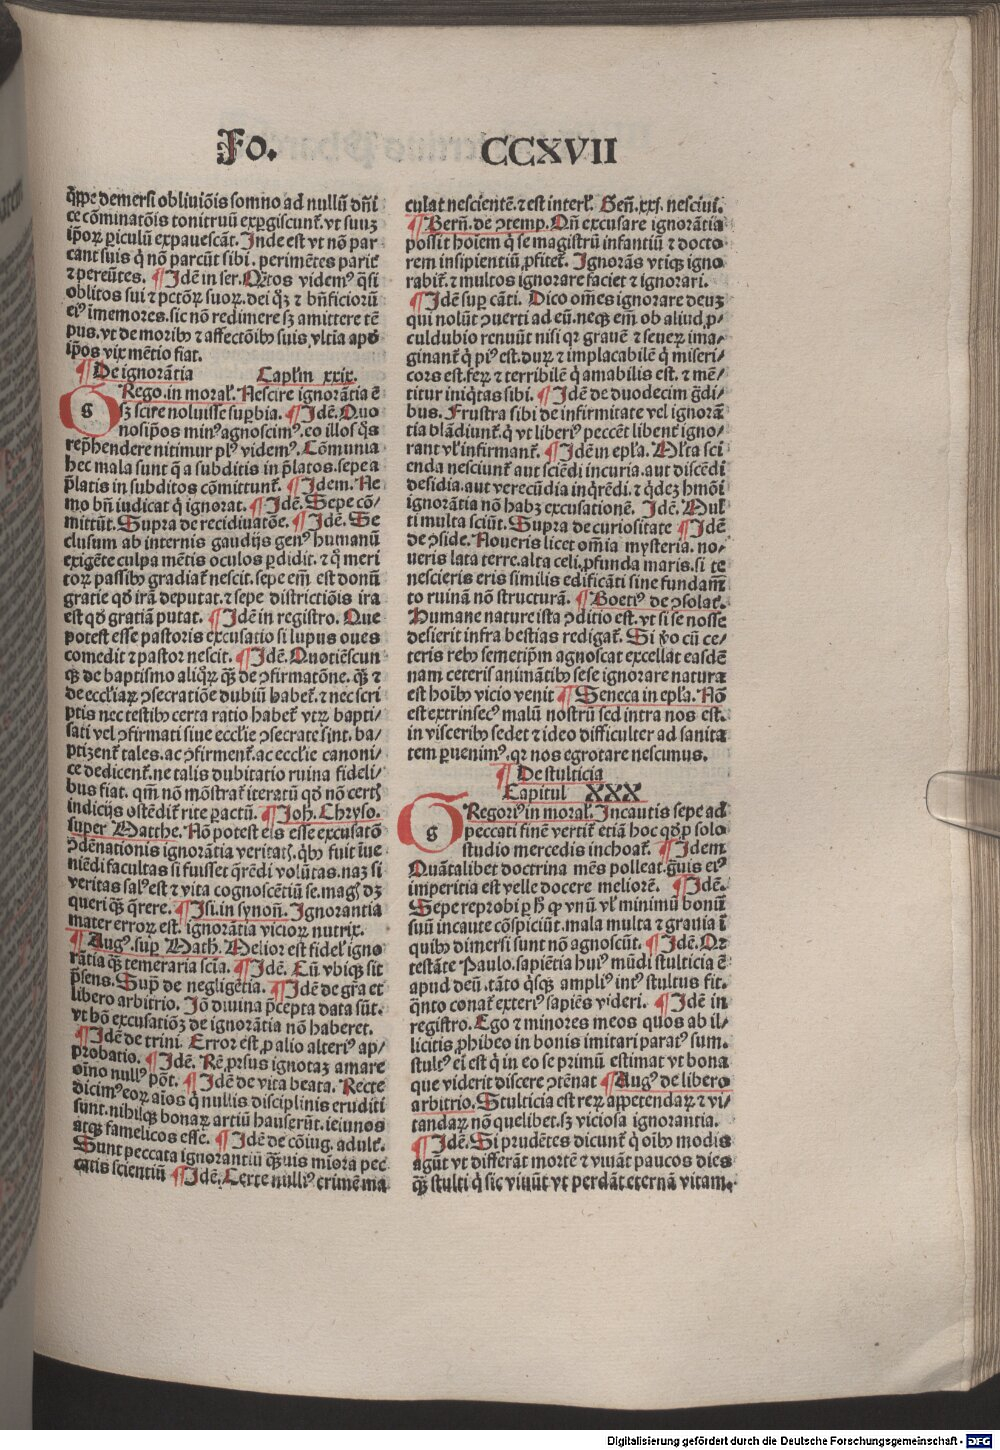 Fo. CCXVII
q̃ppe demersi obliuiõis somno ad nullũ dñi
ce cõminatõis tonitruũ expgiscunt̃. vt suuȝ
ip̃oꝝ piculũ expauescãt. Inde est vt nõ par
cant suis q̃ nõ parcũt sibi. perimẽtes parit̃
⁊ pereũtes. ¶ Idẽ in ser. Q̃tos videmꝰ q̃si
oblitos sui ⁊ pctõꝝ suoꝝ. dei q̃ȝ ⁊ bñficioꝝ
eiꝰ ĩmemores. sic nõ redimere sȝ amittere tẽ
pus. vt de moribꝰ ⁊ affectõibꝰ suis vltia apð
ip̃os vix mẽtio fiat.
¶ De ignorãtia Caplm̃ xxix.
g Rego. in moral̃. Nescire ignorãtia ẽ
sȝ scire noluisse supbia. ¶ Idẽ. Quo
nosip̃os minꝰ agnoscimꝰ. eo illos q̃s
rep̃hendere nitimur plꝰ videmꝰ. Cõmunia
hec mala sunt q̃ a subditis in p̃latos. sepe a
p̃latis in subditos cõmittunt̃. ¶ Idem. Ne
mo bñ iudicat q̃ ignorat. ¶ Idẽ. Sepe cõ⸗
mittũt. Supra de recidiuatõe. ¶ Idẽ. Se
clusum ab internis gaudijs genꝰ humanũ
exigẽte culpa mẽtis oculos pdidit. ⁊ q̃ meri
toꝝ passibꝰ gradiat̃ nescit. sepe em̃ est donũ
gratie qð irã deputat. ⁊ sepe districtiõis ira
est qð gratiã putat. ¶ Idẽ in registro. Que
potest esse pastoris excusatio si lupus oues
comedit ⁊ pastor nescit. ¶ Idẽ. Quotiẽscun
q̃ȝ de baptismo aliq̃ꝝ q̃ȝ de ɔfirmatõne. q̃ȝ ⁊
de eccl̃iaꝝ ɔsecratiõe dubiũ habet̃. ⁊ nec scri
ptis nec testibꝰ certa ratio habet̃ vtꝝ bapti⸗
sati vel ɔfirmati siue eccl̃ie ɔsecrate sint. ba⸗
ptizent̃ tales. ac ɔfirment̃. ac eccl̃ie canoni⸗
ce dedicent̃. ne talis dubitatio ruina fideli⸗
bus fiat. qm̃ nõ mõstrat̃ iteratũ qð nõ certꝭ
indicijs ostẽdit̃ rite pactũ. ¶ Joh̃. Chryso.
super Matthe. Nõ potest eis esse excusatõ
ɔdẽnationis ignorãtia veritatꝭ. q̃bꝰ fuit ĩue
niẽdi facultas si fuisset q̃rẽdi volũtas. naȝ si
veritas salꝰ est ⁊ vita cognoscẽtiũ se. magꝭ dȝ
queri q̃ȝ q̃rere. ¶ Isi. in synoñ. Ignorantia
mater erroꝝ est. ignorãtia vicioꝝ nutrix.
¶ Augꝰ. sup Math. Melior est fidel̃ igno
rãtia q̃ȝ temeraria scia. ¶ Idẽ. Cũ vbiqȝ sit
p̃sens. Sup̃ de negligẽtia. ¶ Idẽ de gra et
libero arbitrio. Iõ diuina p̃cepta data sũt.
vt hõ excusatiõȝ de ignorãtia nõ haberet.
¶ Idẽ de trini. Error est. p alio alteriꝰ ap⸗
probatio. ¶ Idẽ. Rẽ prsus ignotaȝ amare
oĩno nullꝰ põt. ¶ Idẽ de vita beata. Recte
dicimꝰ eoꝝ aĩos q̃ nullis disciplinis eruditi
sunt. nihilqȝ bonaꝝ artiũ hauserũt. ieiunos
atqȝ famelicos esse. ¶ Idẽ de cõiug. adult̃.
Sunt peccata ignorantiũ q̃ȝuis mĩora pec
catis scientiũ ¶ Idẽ. Certe nulliꝰ crimẽ ma
culat nescientẽ. ⁊ est interl̃. Geñ. xxj. nesciui.
¶ Berñ. de ɔtemp. Qñ excusare ignorãtia
possit hoĩem q̃ se magistrũ infantiũ ⁊ docto
rem insipientiũ, pfitet̃. Ignorãs vtiqȝ igno
rabit̃. ⁊ multos ignorare faciet ⁊ ignorari.
¶ Idẽ sup cãti. Dico om̃es ignorare deuȝ
qui nolũt ɔuerti ad eũ. neqȝ em̃ ob aliud, p⸗
culdubio renuũt nisi qr grauẽ ⁊ seueꝝ ima⸗
ginant̃ q̃ piꝰ est. duꝝ ⁊ implacabilẽ q̃ miseri⸗
cors est. feꝝ ⁊ terribilẽ q̃ amabilis est. ⁊ mẽ⸗
titur iniq̃tas sibi. ¶ Idẽ de duodecim g̃di⸗
bus. Frustra sibi de infirmitate vel ignorã
tia blãdiunt̃. q̃ vt liberiꝰ peccẽt libent̃ igno⸗
rant vl̃ infirmant̃. ¶ Idẽ in epl̃a. Ml̃ta sci
enda nesciunt̃ aut sciẽdi incuria. aut discẽdi
desidia. aut verecũdia inq̃rẽdi. ⁊ q̃dẽȝ hmõi
ignorãtia nõ habȝ excusationẽ. Idẽ. Mul⸗
ti multa sciũt. Supra de curiositate ¶ Idẽ
de ɔside. Noueris licet om̃ia mysteria. no⸗
ueris lata terre. alta celi, pfunda maris. si te
nescieris eris similis edificãti sine fundam̃
to ruinã nõ structurã. ¶ Boetiꝰ de ɔsolat̃.
Humane nature ista ɔditio est. vt si se nosse
desierit infra bestias redigat̃. Si ṽo cũ ce⸗
teris rebꝰ semetip̃m agnoscat excellat easdẽ
nam ceteris animãtibꝰ sese ignorare natura
est hoĩbꝰ vicio venit ¶ Seneca in epl̃a. Nõ
est extrinsecꝰ malũ nostrũ sed intra nos est.
in visceribꝰ sedet ⁊ ideo difficulter ad sanita
tem puenimꝰ. qr nos egrotare nescimus.
¶ De stulticia
Capitul XXX
g Regoriꝰ in moral̃. Incautis sepe ad
peccati finẽ vertit̃ etiã hoc qð p solo
studio mercedis inchoat̃. ¶ Idem
Quãtalibet doctrina mẽs polleat. g̃uis eiꝰ
imperitia est velle docere meliorẽ. ¶ Idẽ.
Sepe reprobi p hꝭ qꝫ vnũ vl̃ minimũ bonũ
suũ incaute cõspiciũt. mala multa ⁊ grauia ĩ
quibꝰ dimersi sunt nõ agnoscũt. ¶ Idẽ. At
testãte Paulo. sapiẽtia huiꝰ mũdi stulticia ẽ
apud deũ. tãto q̃sqȝ ampliꝰ intꝰ stultus fit.
q̃nto conat̃ exteriꝰ sapiẽs videri. ¶ Idẽ in
registro. Ego ⁊ minores meos quos ab il⸗
licitis, phibeo in bonis imitari paratꝰ sum.
stultꝰ em̃ est q̃ in eo se primũ estimat vt bona
que viderit discere ɔtẽnat ¶ Augꝰ de libero
arbitrio. Stulticia est reꝝ appetendaꝝ ⁊ vi⸗
tandaꝝ nõ quelibet. sȝ viciosa ignorantia.
¶ Idẽ. Si prudẽtes dicunt̃ q̃ oĩbꝰ modis
agũt vt differãt mortẽ ⁊ viuãt paucos dies
q̃ȝ stulti q̃ sic viuũt vt perdãt eternã vitam.
Digitalisierung gefördert durch die Deutsche Forschungsgemeinschaft - DFG